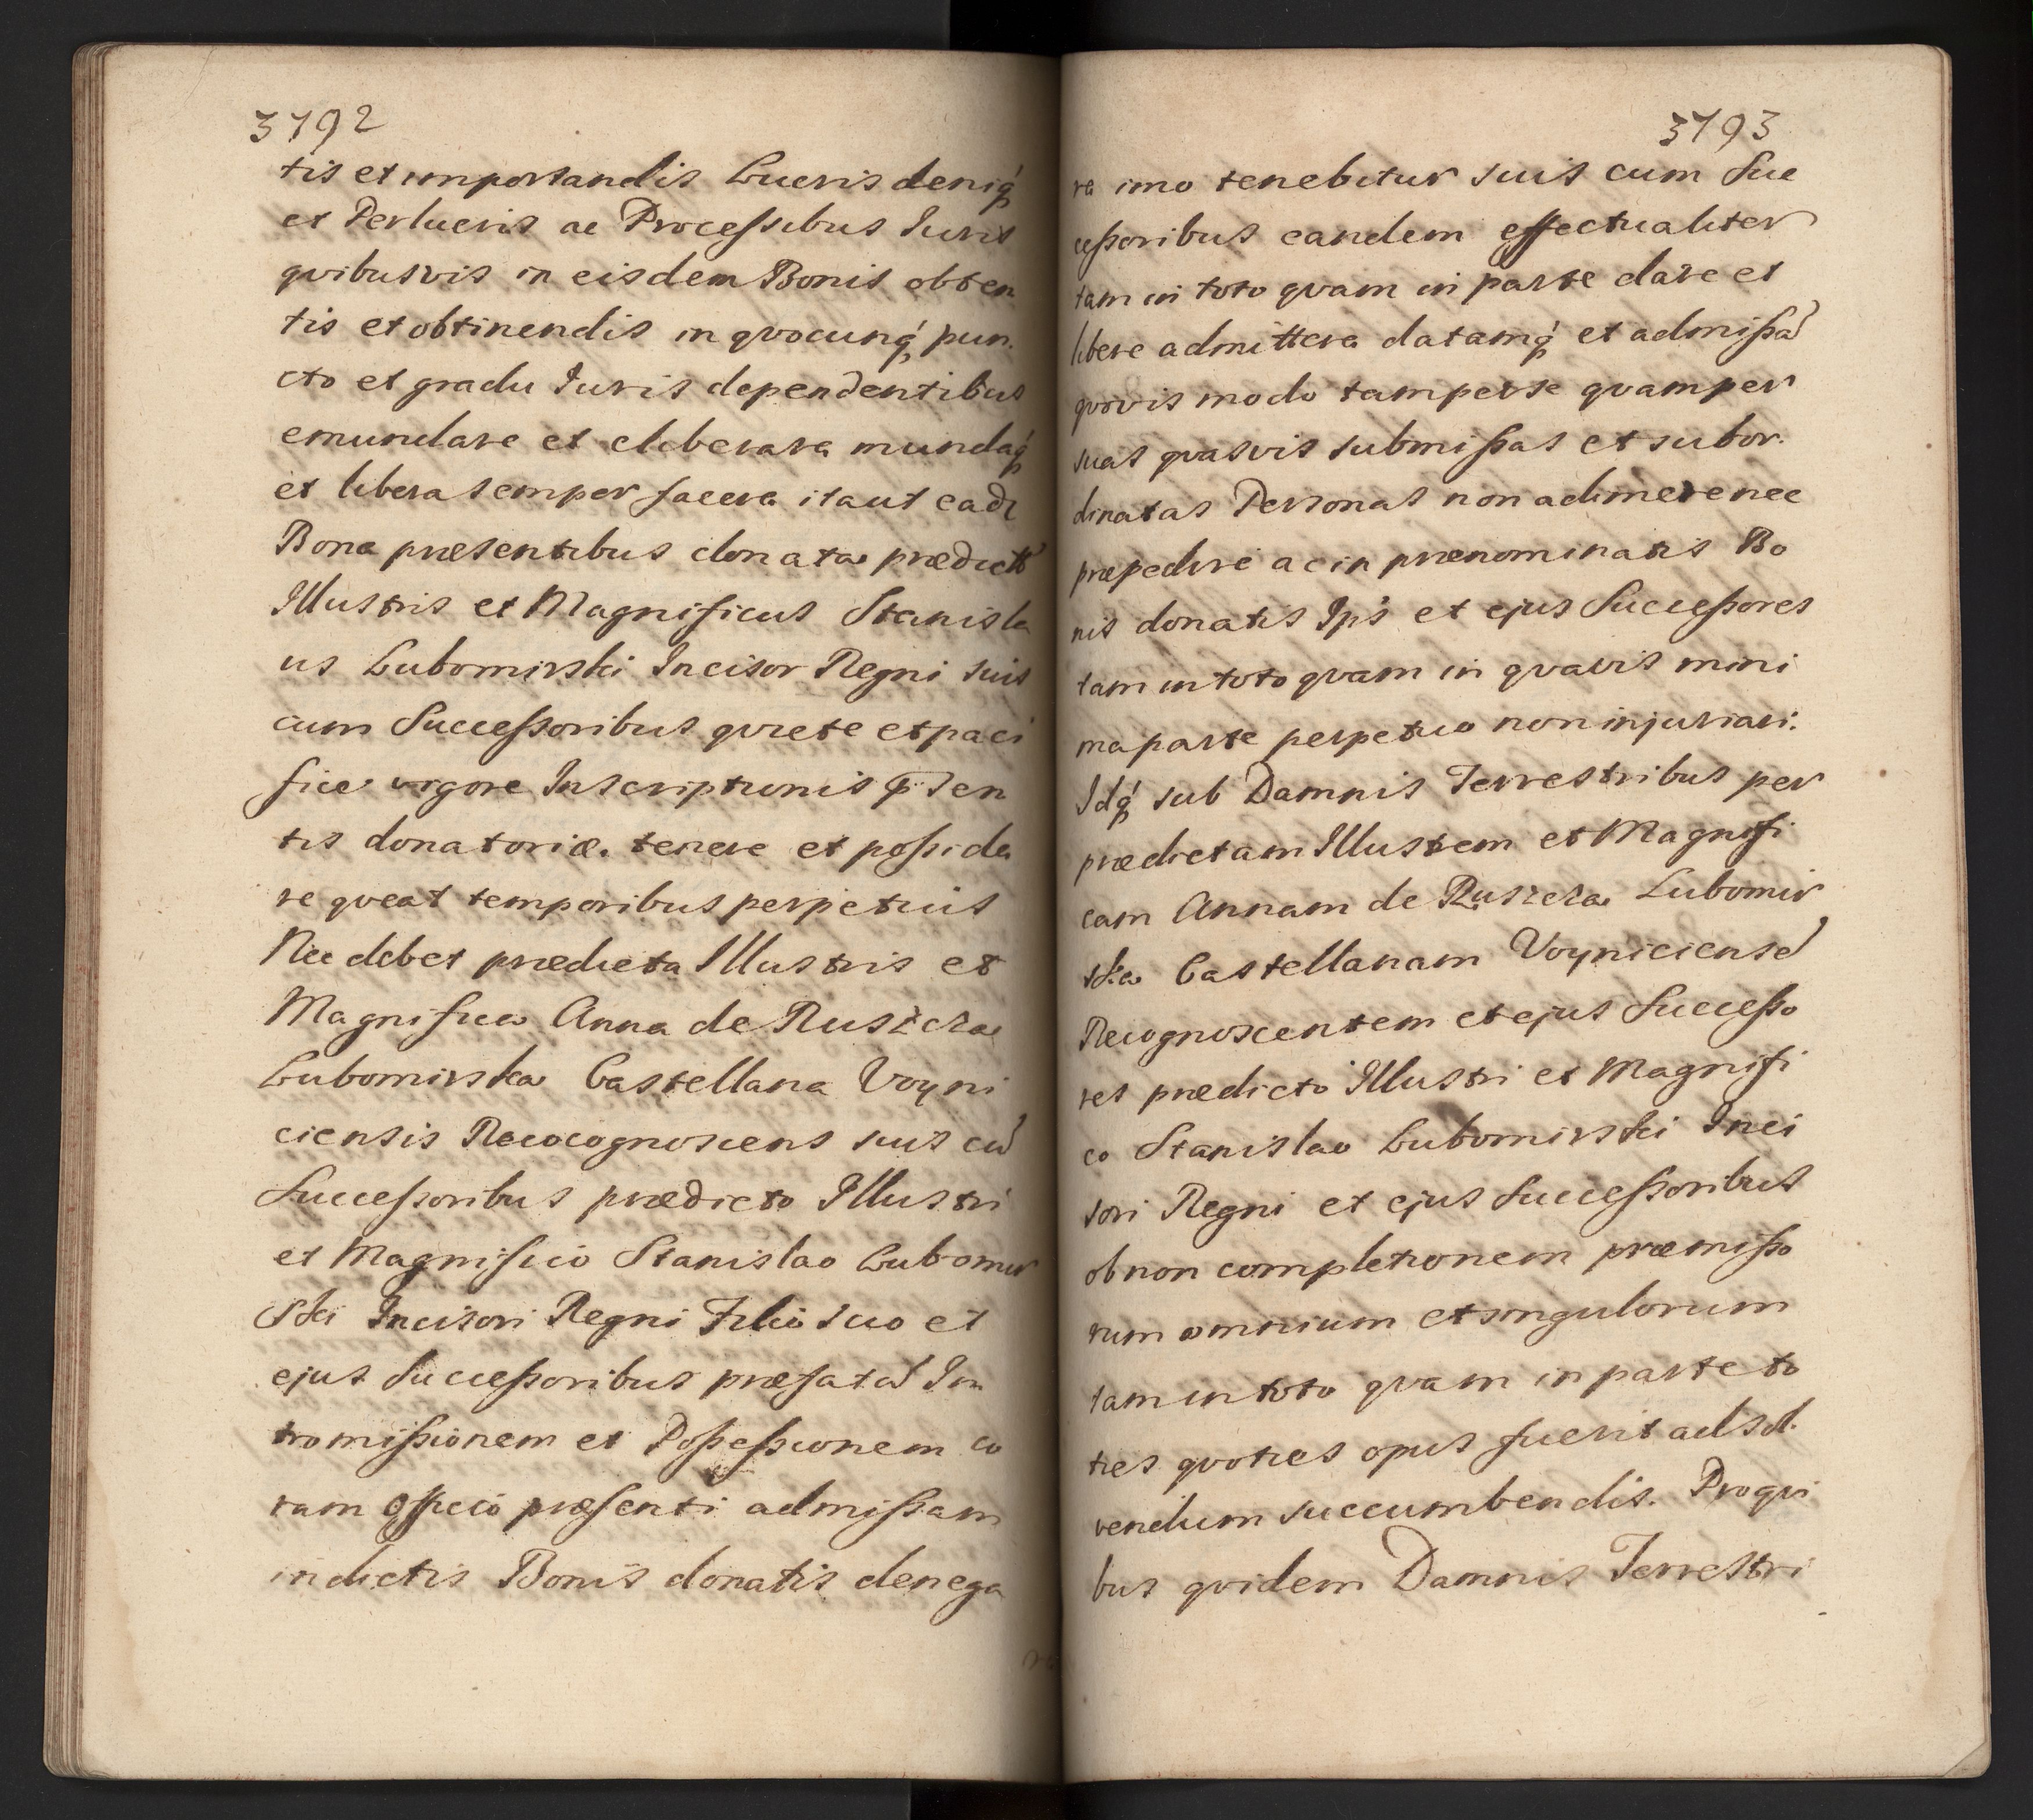 3792
tis et importandis Lucris deniq́
et Perlucris ac Processibus Iuris
qvibusvis in eisdem Bonis obten
tis et obtinendis in qvocunq́ pun.
cto et gradu Iuris dependentibus
emundare et eliberare mundaq́
et libera semper facere itaut eadẽ
Bona præsentibus donata prædict9
Illustris et Magnificus Stanisla
us Lubomirski Incisor Regni suis
cum Successoribus qviete et paci
fice vigore Inscriptionis p̄sen
tis donatoriæ. tenere et posside
re qveat temporibus perpetuis
Nec debet prædicta Illustris et
Magnifica Anna de Ruszcza
Lubomirska Castellana Voyni
ciensis Recocognoscens suis cũ
Successoribus prædicto Illustri
et Magnifico Stanislao Lubomir
ski Incisori Regni Filio suo et
ejus Successoribus præfatã In
tromissionem et Possessionem co
ram Officio præsenti admissam
in dictis Bonis donatis denega
3793
re imo tenebitur suis cum Suc
cessoribus eandem effectualiter
tam in toto qvam in parte dare et
libere admittere datamq́ et admissã
qvovis modo tam per se qvam per
suas qvasvis submissas et subor.
dinatas Personas non adimere nec
præpedire ac in prænominatis Bo
nis donatis Ip̃s et ejus Successores
tam in toto qvam in qvavis mini
ma parte perpetuo non injuriari.
Idq́ sub Damnis Terrestribus per
prædictam Illustrem et Magnifi
cam Annam de Ruszcza Lubomir
ska Castellanam Voyniciensẽ
Recognoscentem et ejus Successo
res prædicto Illustri et Magnifi
co Stanislao Lubomirski Inci
sori Regni et ejus Successoribus
ob non completionem præmisso
rum omnium et singulorum
tam in toto qvam in parte to
ties qvoties opus fuerit ad sol.
vendum succumbendis. Pro qvi
bus qvidem Damnis Terrestri